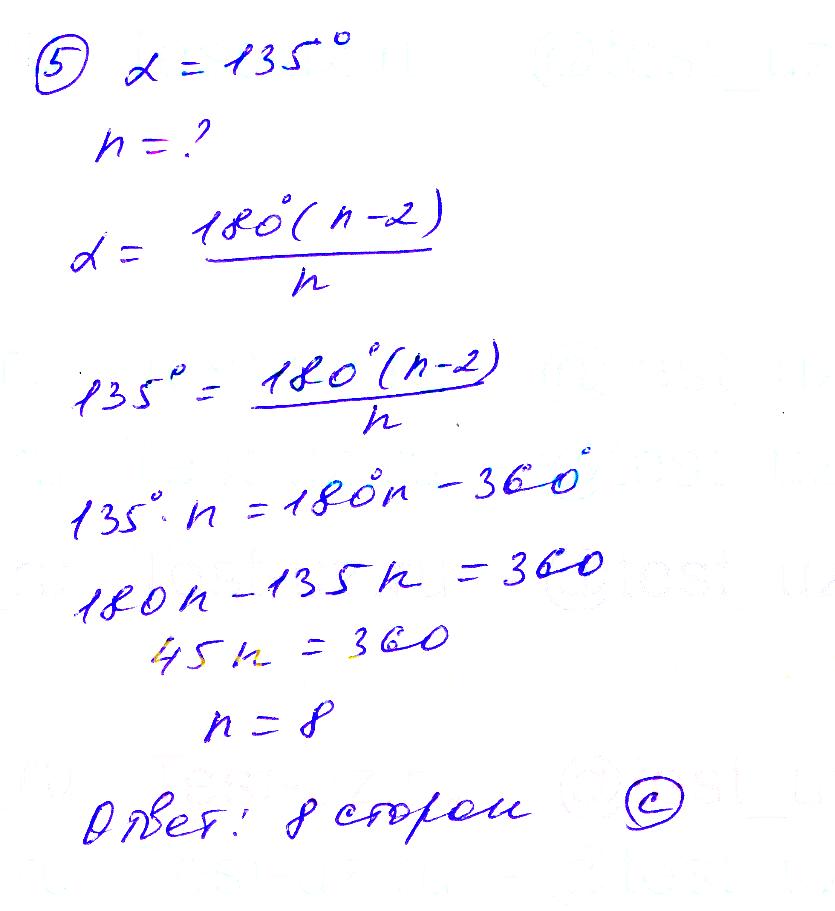 ⑤ α = 135°
n = ?
α = 180°(n-2) / n
135° = 180°(n-2) / n
135°· n = 180°n - 360°
180n - 135n = 360
45n = 360
n = 8
Ответ: 8 сторон ⓒ